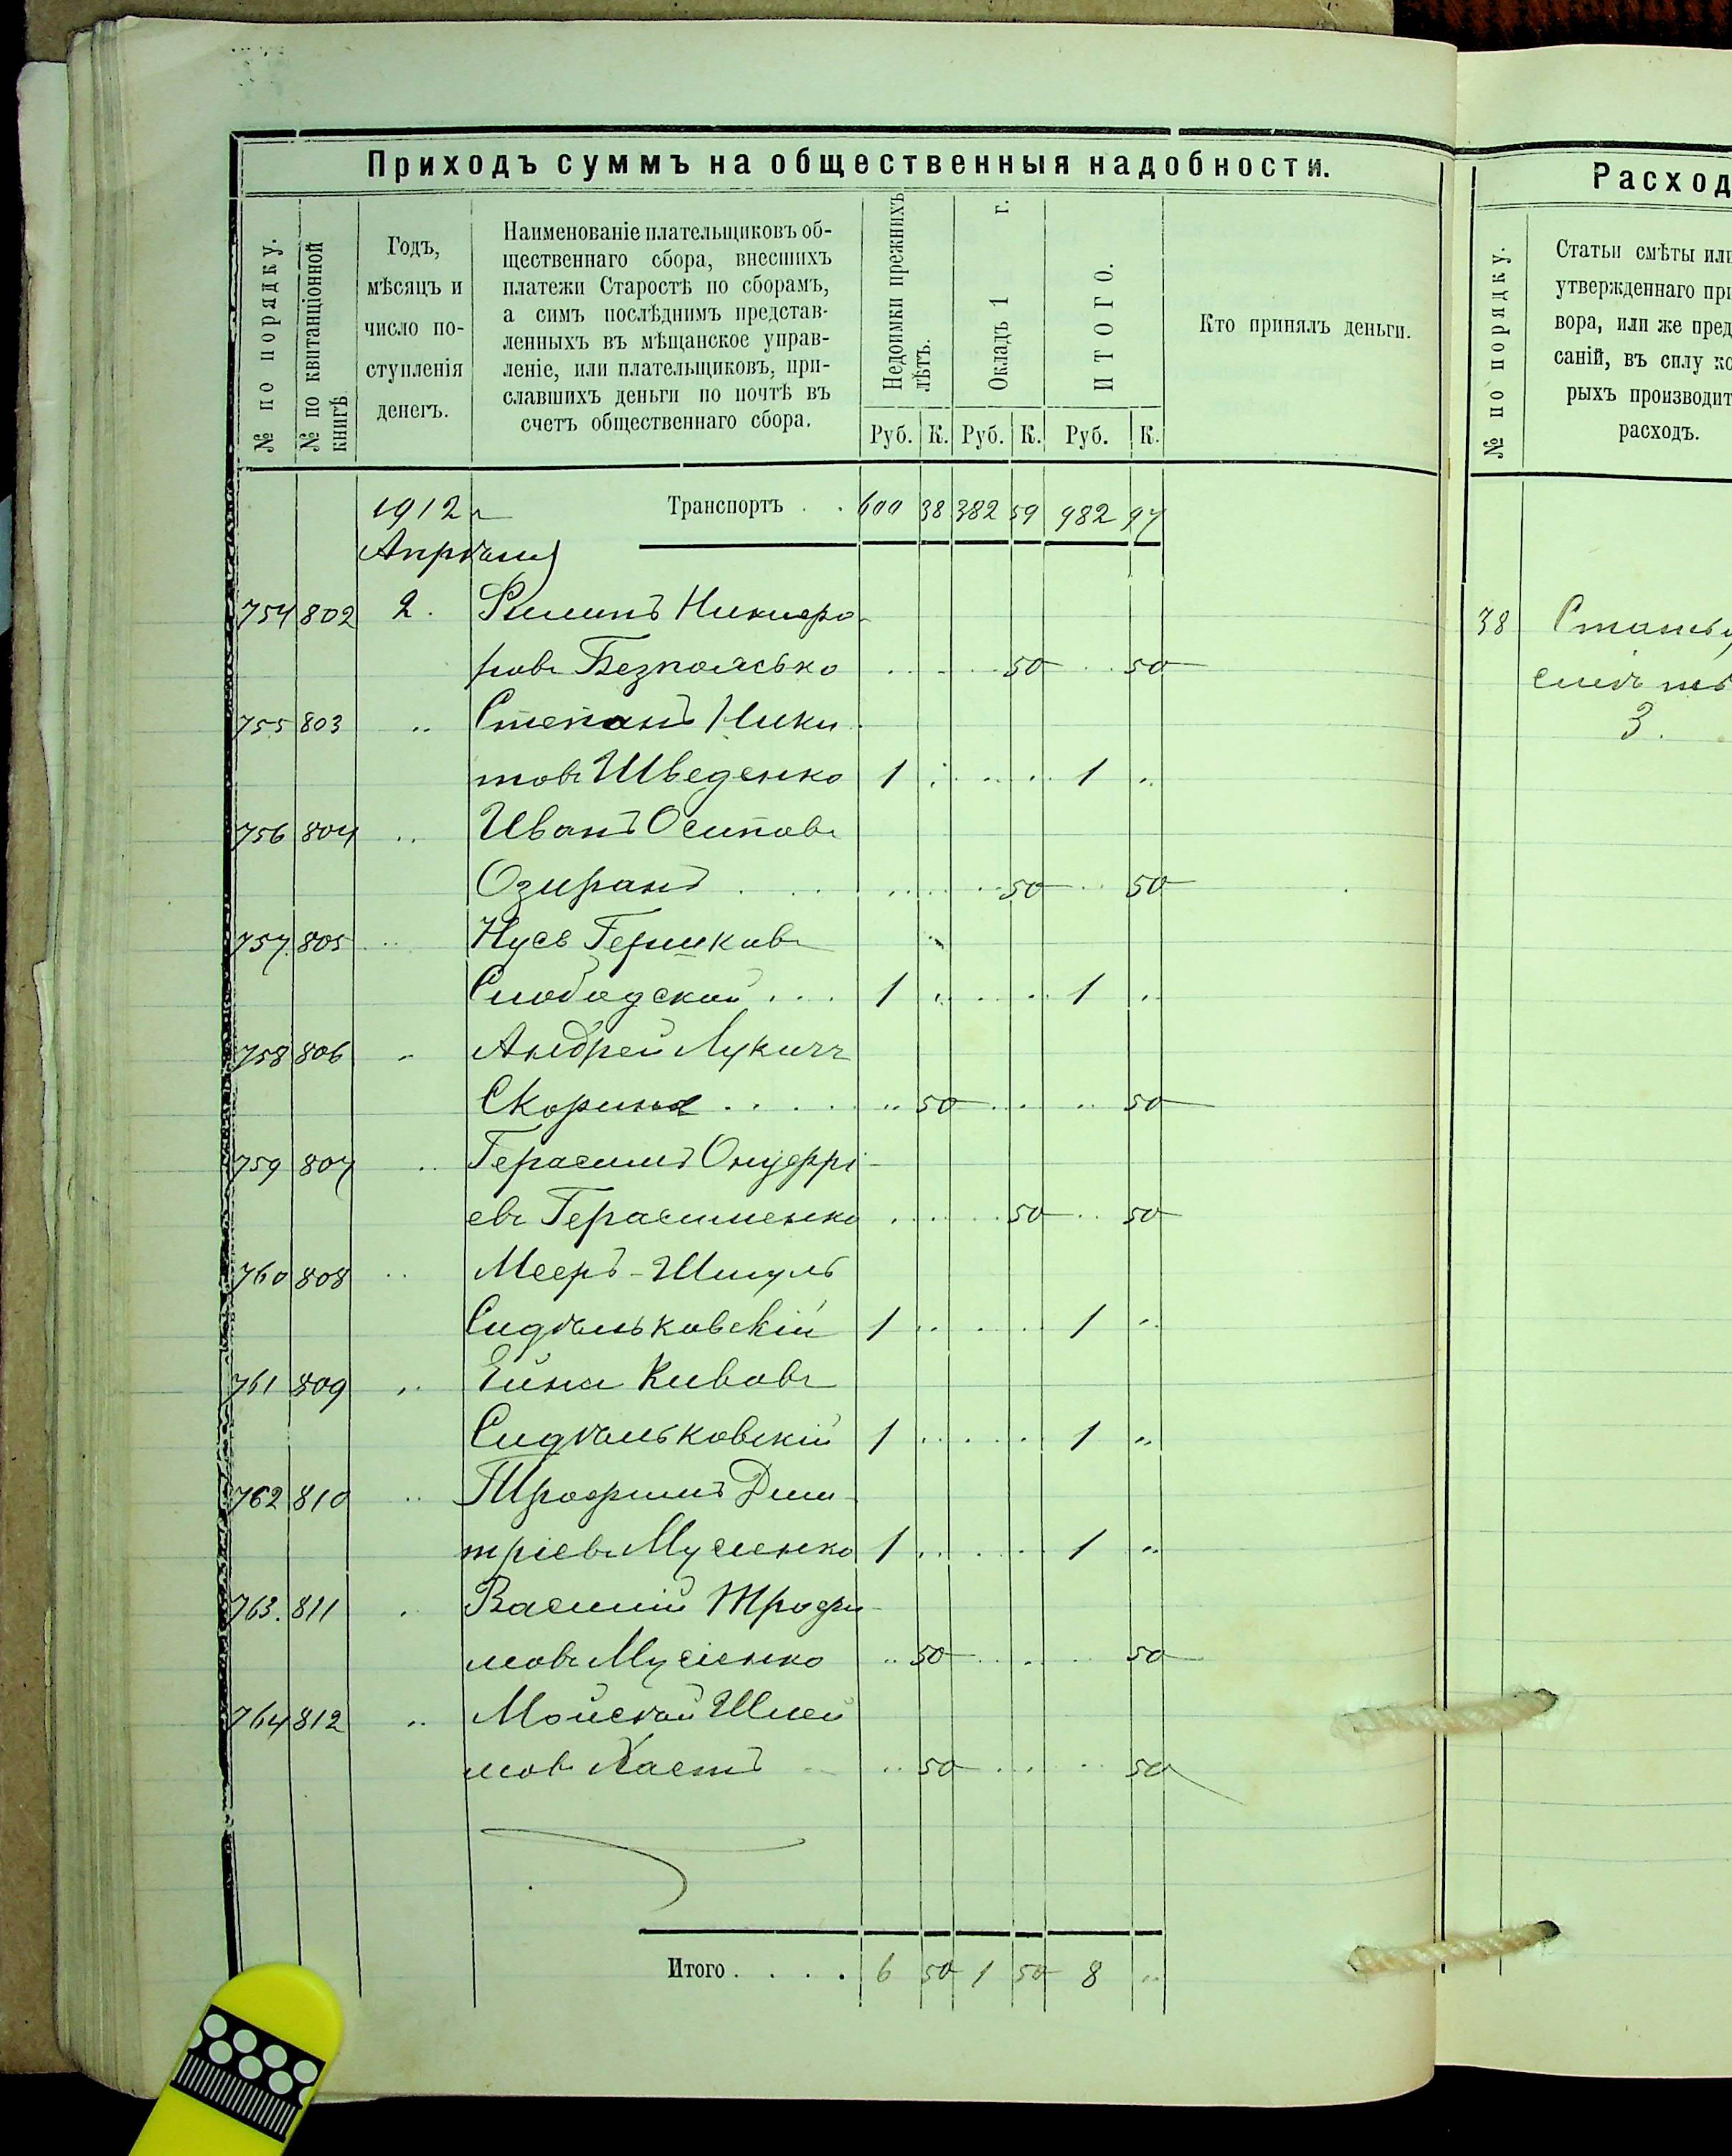 Приходъ суммъ на общественныя надобности.
№ по порядку.
№ по квитанціонной книгѣ.
Годъ,
мѣсяцъ и
число по-
ступленія
денегъ.
Наименованіе плательщиковъ об-
щественнаго сбора, внесшихъ
платежи Старостѣ по сборамъ,
а симъ послѣднимъ представ-
ленныхъ въ мѣщанское управ-
леніе, или плательщиковъ, при-
славшихъ деньги по почтѣ въ
счетъ общественнаго сбора.
Недоимки прежнихъ
лѣтъ.
Окладъ 1 г.
ИТОГО.
Кто принялъ деньги.
Руб. К. Руб. К. Руб. К.
1912 г. Транспортъ . . 600 38 382 59 982 97
Апрѣля
754 802 2. Филипъ Никифо-
ровъ Безпоясько 50 50
755 803 " Степанъ Ники
товъ Шведенко 1 " 1 "
756 804 " Иванъ Осиповъ
Озиранъ 50 50
757. 805 " Нусь Гершковъ
Слободской . . . 1 " 1 "
758 806 " Андрей Лукичъ
Скорина . . . . " 50 50
759 807 " Герасимъ Онуфрі-
евъ Герасименко 50 50
760 808 " Мееръ-Шмуль
Сидѣльковскій 1 " 1 "
761 809 " Ейна Кивовъ
Сидѣльковскій 1 1 "
762 810 " Трофимъ Дми-
тріевъ Мусіенко 1 1 "
763. 811 " Василій Трофи-
мовъ Мусіенко " 50 50
764 812 " Мойсѣй Шлей
мовъ Хаетъ " 50 50
Итого . . . . 6 50 1 50 8 "
Расход
№ по порядку.
Статьи смѣты или
утвержденнаго при
вора, или же пред
саній, въ силу ко
рыхъ производит
расходъ.
38 Статья
3.